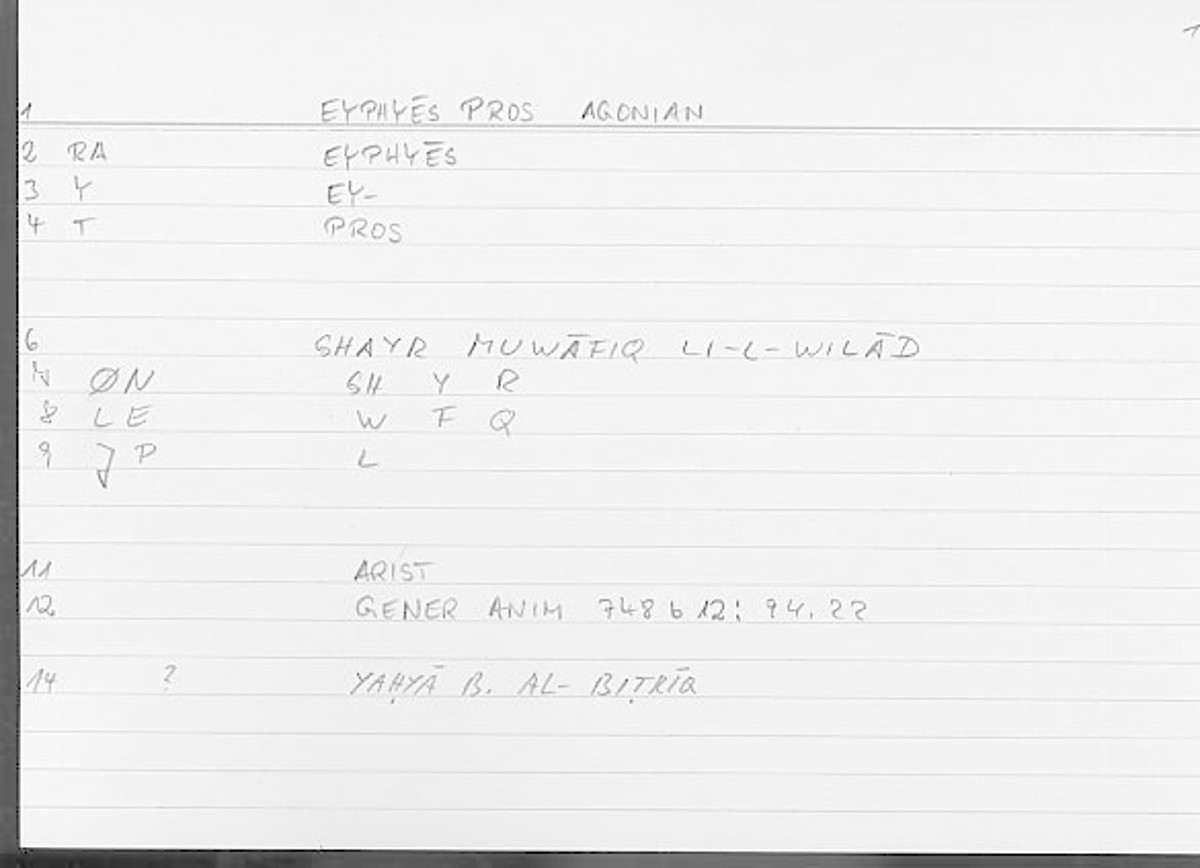 1
1 EYPHYĒS PROS AGONIAN
2 RA EYPHYĒS
3 Y EY-
4 T PROS
6 GHAYR MUWĀFIQ LI-L-WILĀD
7 ØN GH Y R
8 LE W F Q
9 JP L
11 ARIST
12 GENER ANIM 748 b 12: 94.22
14 ? YAḤYĀ B. AL-BIṬRĪQ